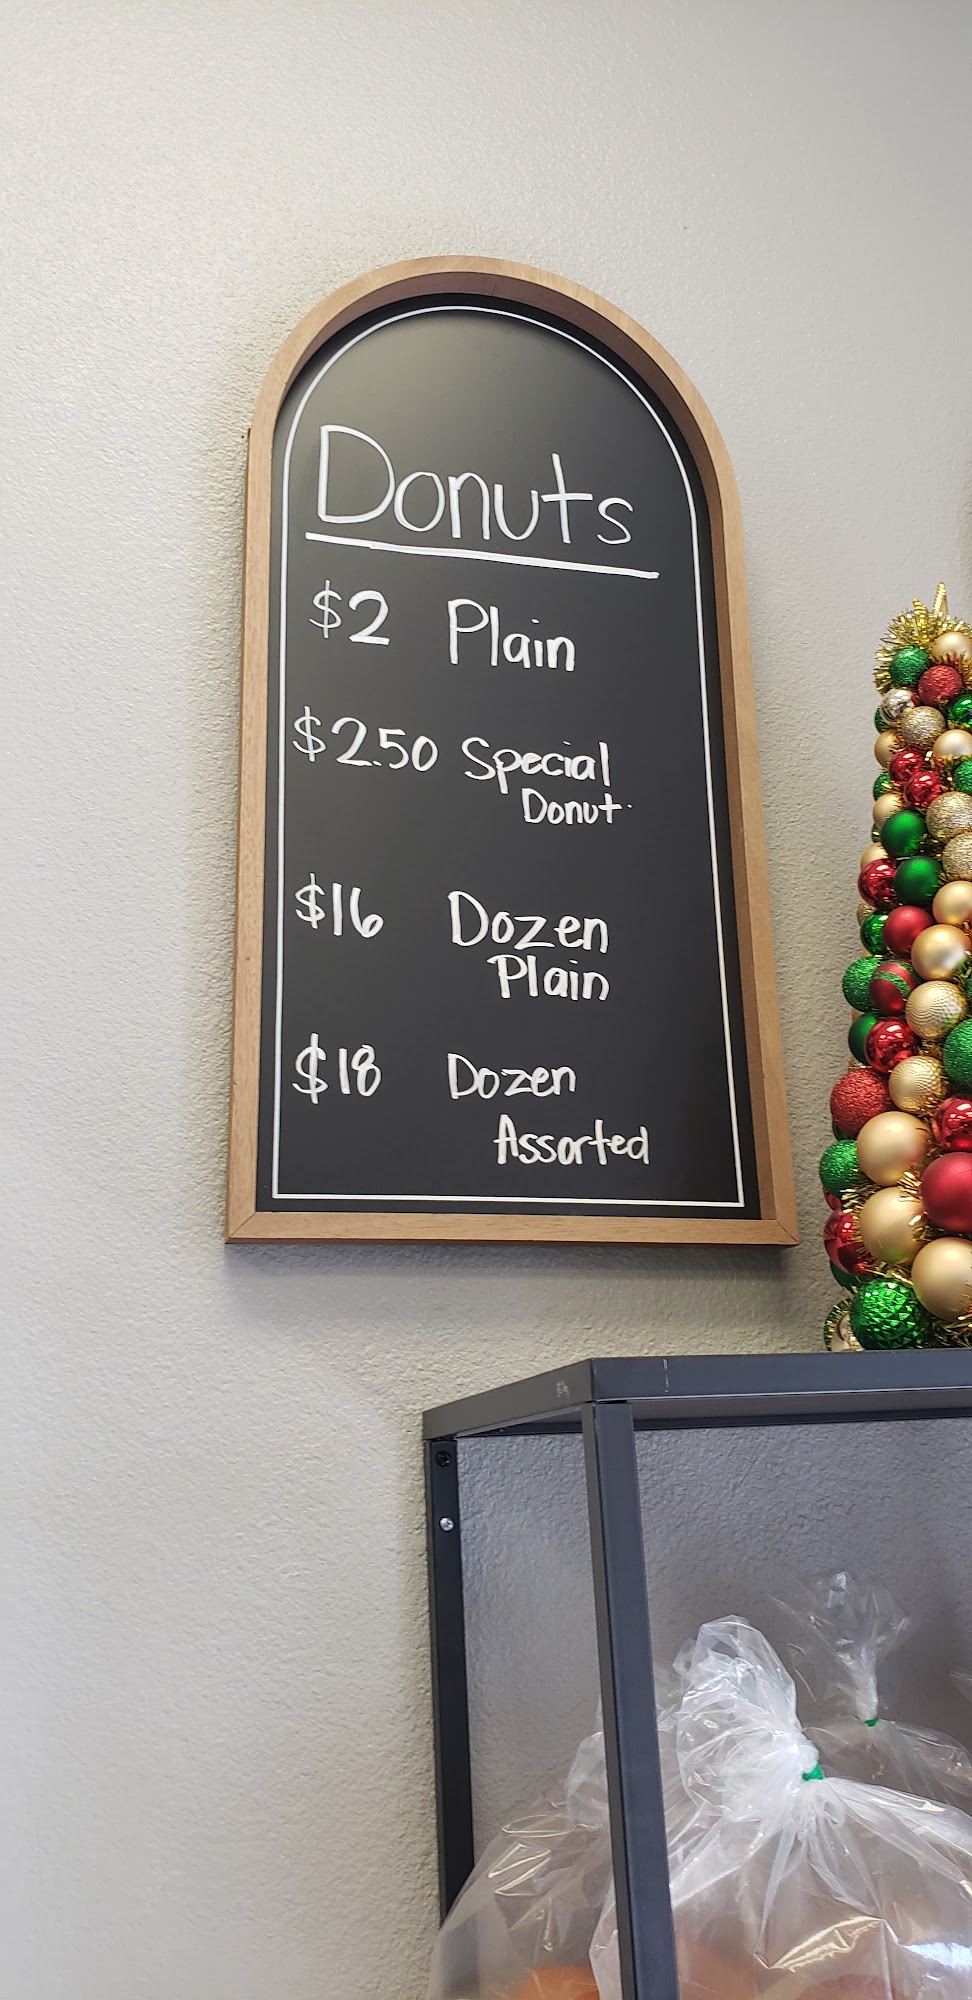 Donuts
$2 Plain
$2.50 Special
Donut
$16 Dozen
Plain
$18 Dozen
Assorted